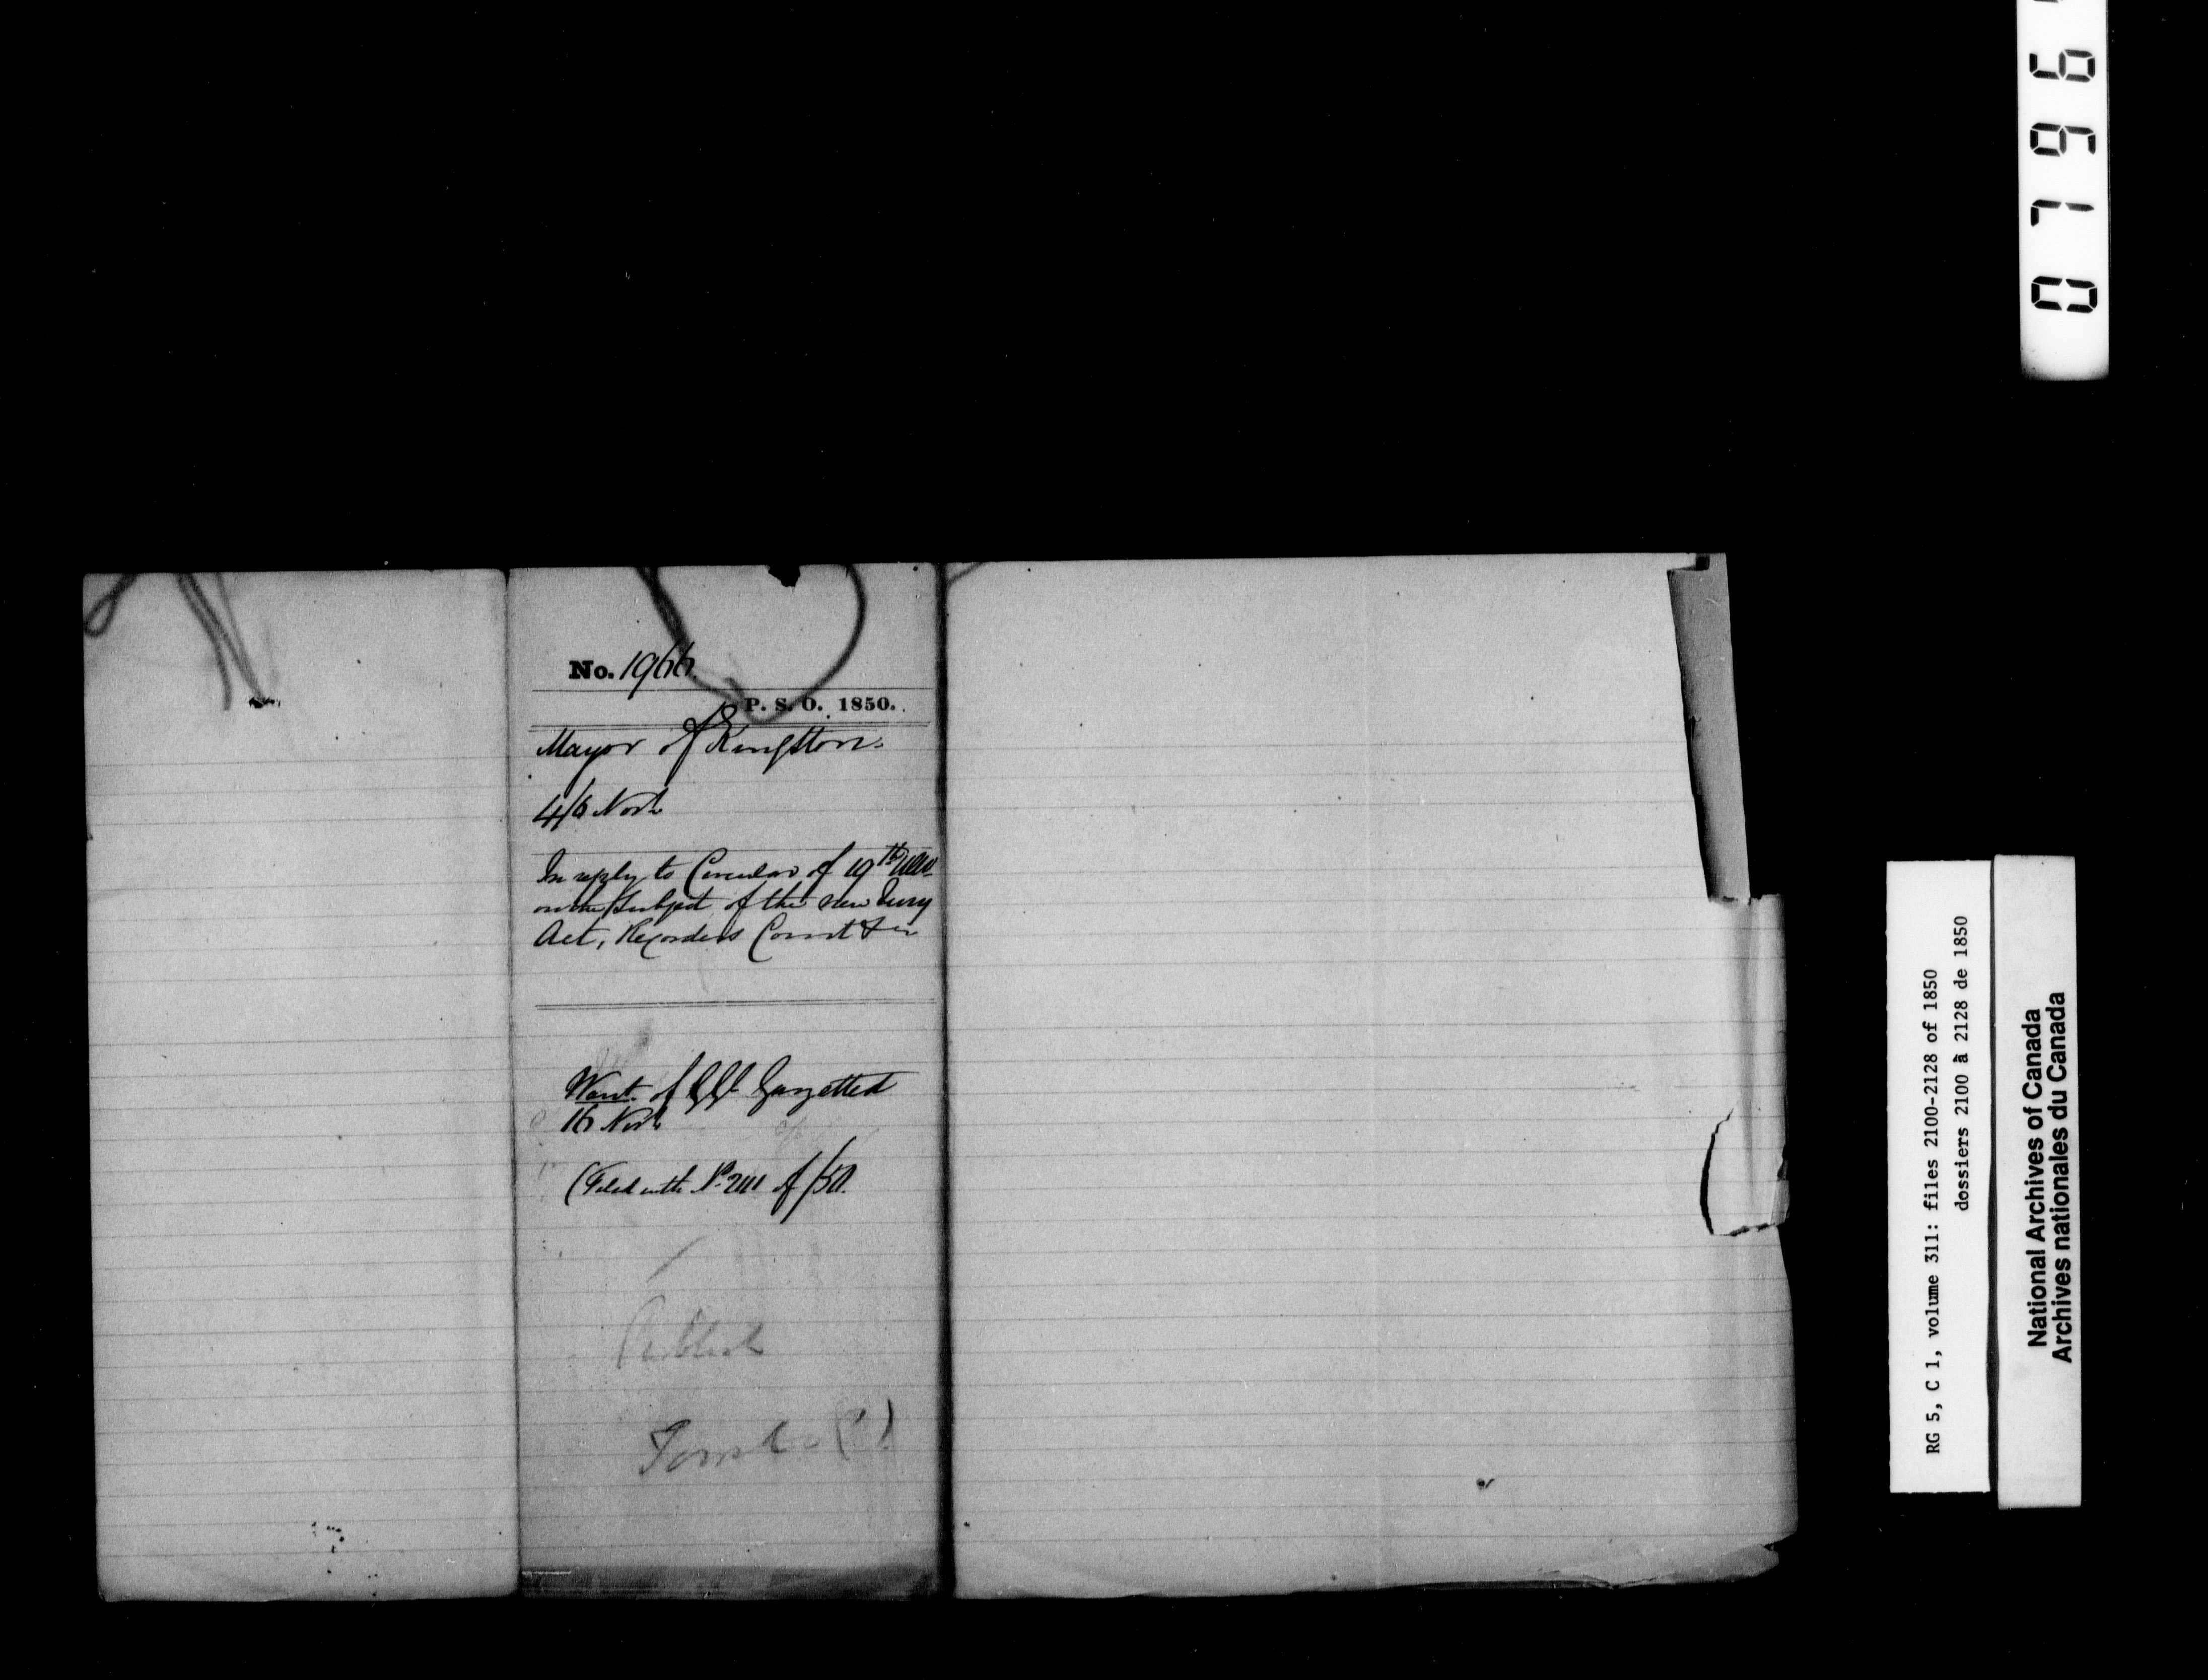 No. 1966
P. S. O. 1850.
Mayor of Kingston
4/6 Novr
In reply to Circular of 19th Ulto
on the Subject of the new Jury
Act, Recorders Court &c
Want. of Gazetted
16 Novr
(Filed with No. 2111 of /50.
0796
RG 5, C 1, volume 311: files 2100-2128 of 1850
dossiers 2100 à 2128 de 1850
National Archives of Canada
Archives nationales du Canada